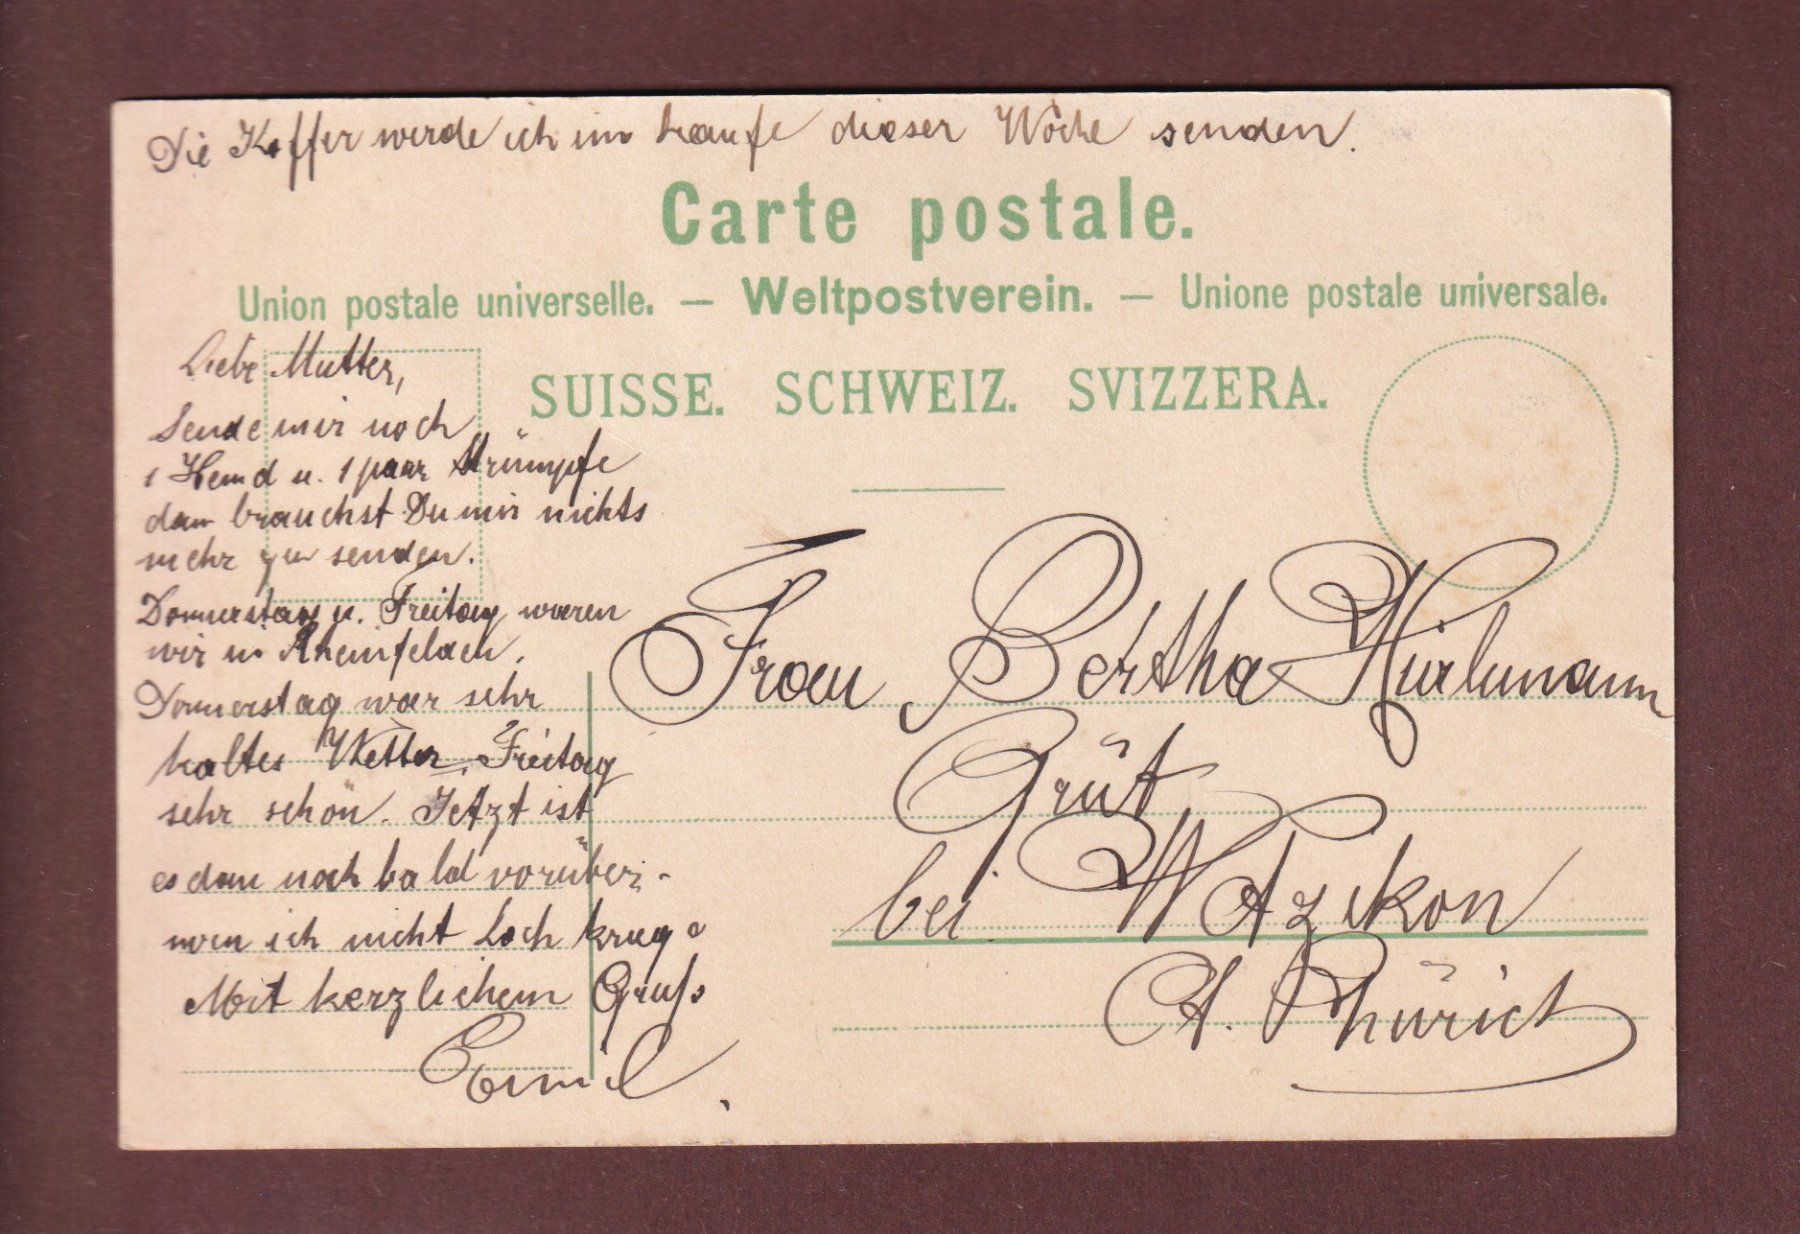 Die Koffer werde ich im Laufe dieser Woche senden.
Carte postale.
Union postale universelle. — Weltpostverein. — Unione postale universale.
SUISSE. SCHWEIZ. SVIZZERA.
Liebe Mutter,
Sende mir noch
1 Hemd u. 1 paar Strümpfe
dan brauchst Du mir nichts
mehr zu senden.
Donnerstag u. Freitag waren
wir in Rheinfelden.
Donnerstag war sehr
kaltes Wetter, Freitag
sehr schön. Jetzt ist
es dan noch bald vorüber,
wen ich nicht Loch
Mit herzlichem Gruss
Emil
Frau Bertha Hürlimann
Grüt
bei Wetzikon
Ct. Zürich